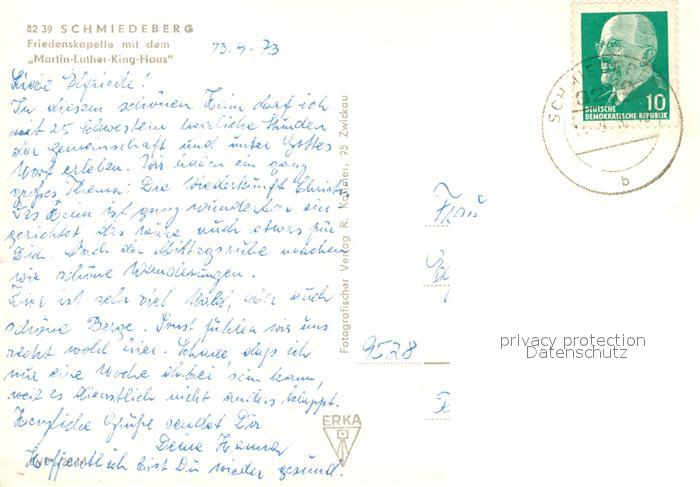 82 39 SCHMIEDEBERG
Friedenskapelle mit dem
„Martin-Luther-King-Haus"
13.9.73
Liebe Elfriede!
In diesem schönen Heim darf ich
mit 25 Schwestern herrliche Stunden
der Gemeinschaft und unter Gottes
Wort erleben. Wir haben ein ganz
großes Thema: Die Wiederkunft Christi
Das Heim ist ganz wunderbar ein-
gerichtet das wäre auch etwas für
Dich. Nach der Mittagsruhe machen
wir schöne Wanderungen.
Hier ist sehr viel Wald, aber auch
schöne Berge. Sonst fühlen wir uns
recht wohl hier. Schade, daß ich
nur eine Woche dabei sein kann,
weil es dienstlich nicht anders klappt.
Herzliche Grüße sendet Dir
Deine Hanna
Hoffentlich bist Du wieder gesund.
Fotografischer Verlag R. Kallmer, 75 Zwickau
ERKA
DEUTSCHE
DEMOKRATISCHE REPUBLIK
10
SCHMIEDEBERG
b
Frau
9528
privacy protection
Datenschutz